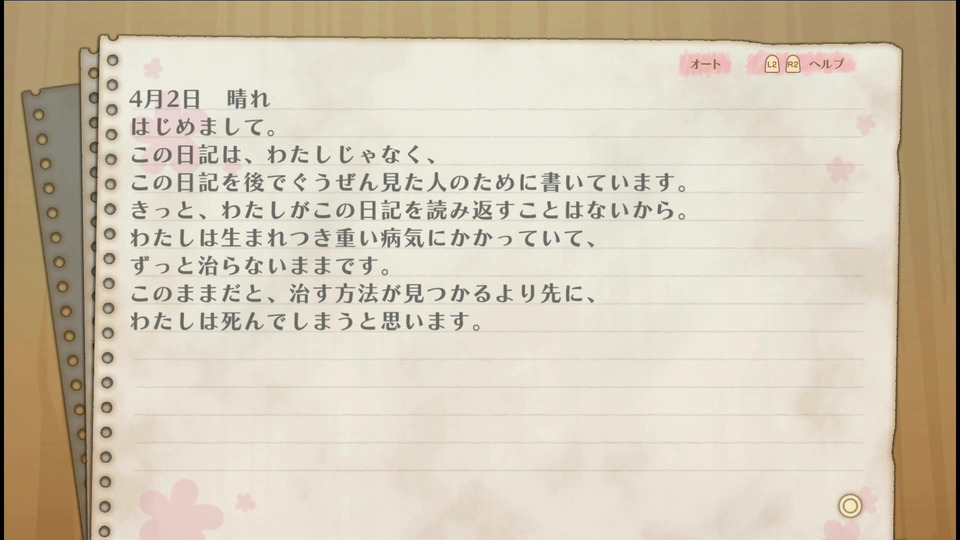 オート L2 R2 ヘルプ
4月2日　晴れ
はじめまして。
この日記は、わたしじゃなく、
この日記を後でぐうぜん見た人のために書いています。
きっと、わたしがこの日記を読み返すことはないから。
わたしは生まれつき重い病気にかかっていて、
ずっと治らないままです。
このままだと、治す方法が見つかるより先に、
わたしは死んでしまうと思います。